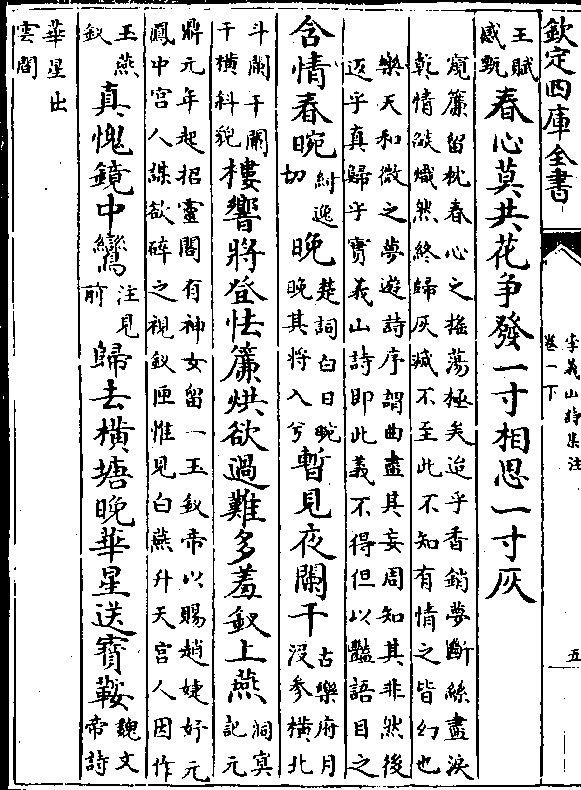 欽定四庫全書
李義山詩集注
卷一下
五
王賦
感甄
春心莫共花爭發一寸相思一寸灰
窺簾留枕春心之搖蕩極矣迨乎香銷夢斷絲盡淚
乾情燄熾然終歸灰滅不至此不知有情之皆幻也
樂天和微之夢遊詩序謂曲盡其妄周知其非然後
返乎真歸乎實義山詩即此義不得但以豔語目之
含情春晼
糾逸
切
晚
楚詞白日晼
晚其將入兮
暫見夜闌干
古樂府月
沒參橫北
斗闌干闌
干橫斜貌
樓響將登怯簾烘欲過難多羞釵上燕
洞冥
記元
鼎元年起招靈閣有神女留一玉釵帝以賜趙婕妤元
鳳中宮人謀欲碎之視釵匣惟見白燕升天宮人因作
玉燕
釵
真愧鏡中鸞
注見
前
歸去橫塘晚華星送寶鞍
魏文
帝詩
華星出
雲間